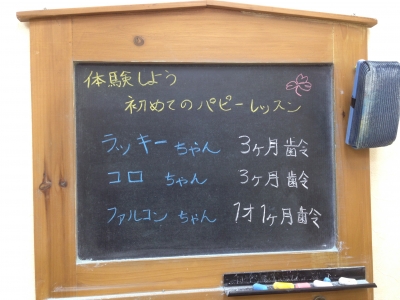 体験しよう
初めてのパピーレッスン
ラッキーちゃん 3ヶ月齢
コロちゃん 3ヶ月齢
ファルコンちゃん 1才1ヶ月齢